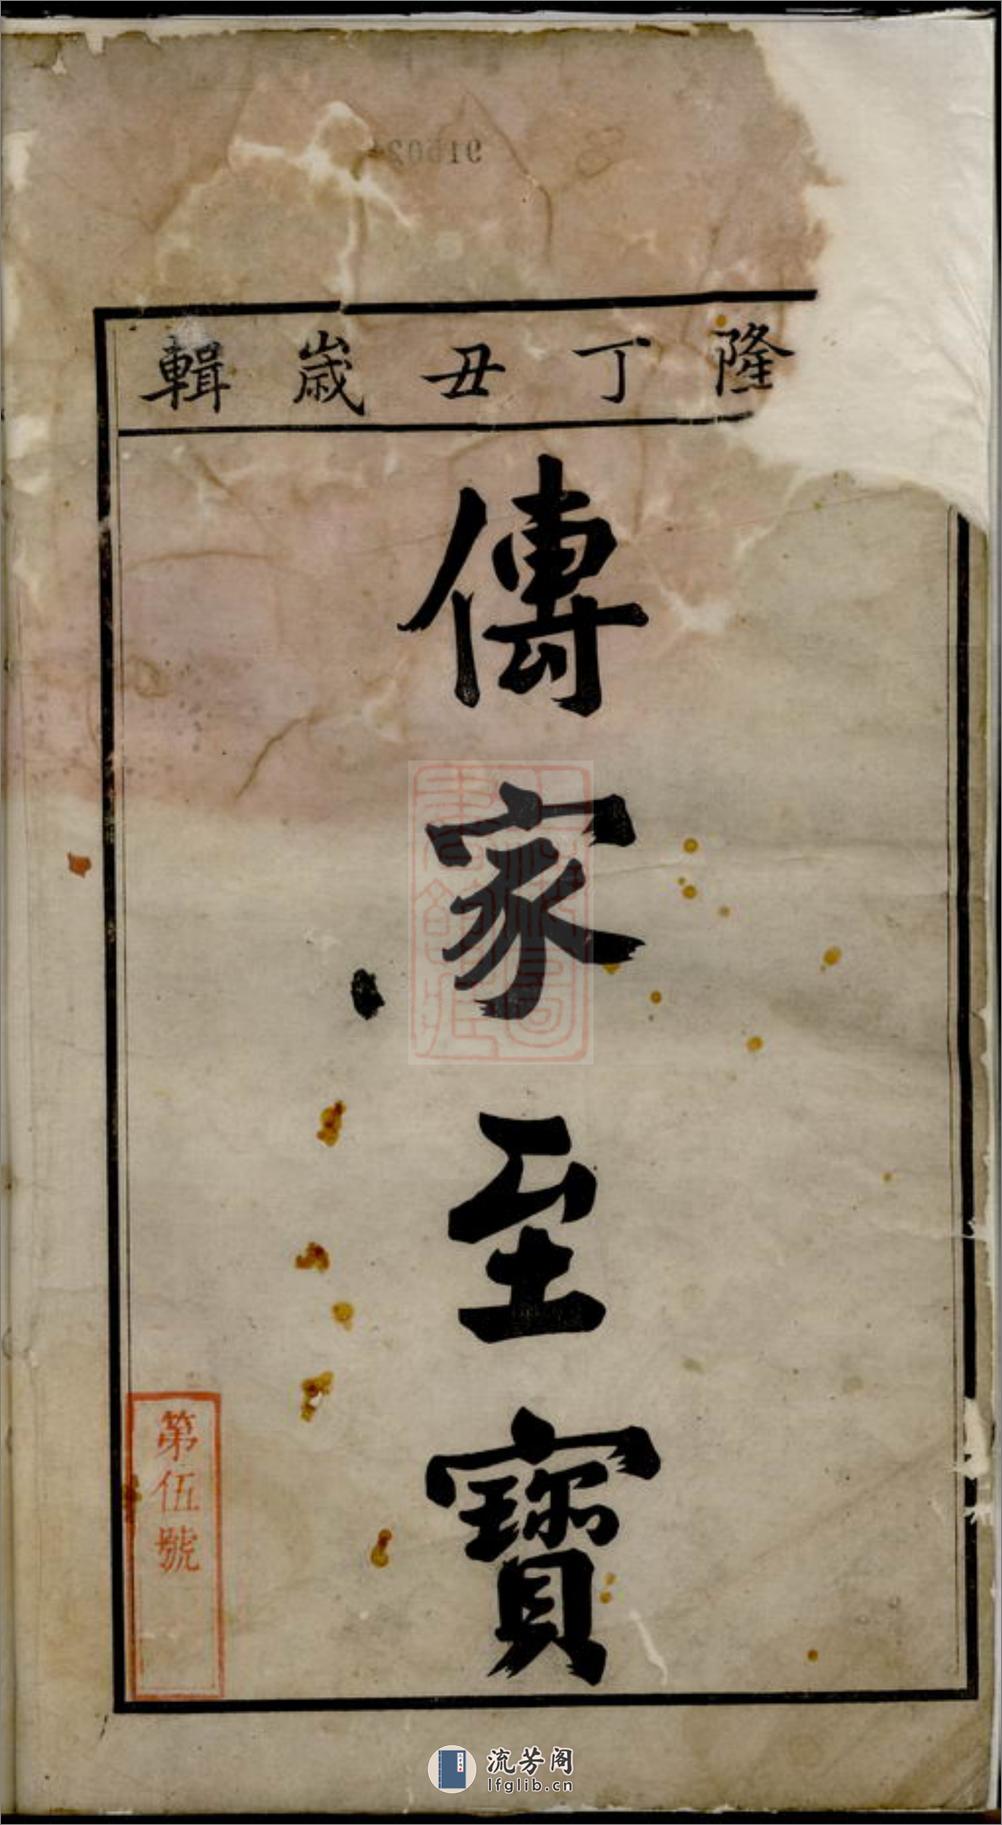 隆丁丑歲輯
傳家至寶
第伍號
流芳阁
lfglib.cn